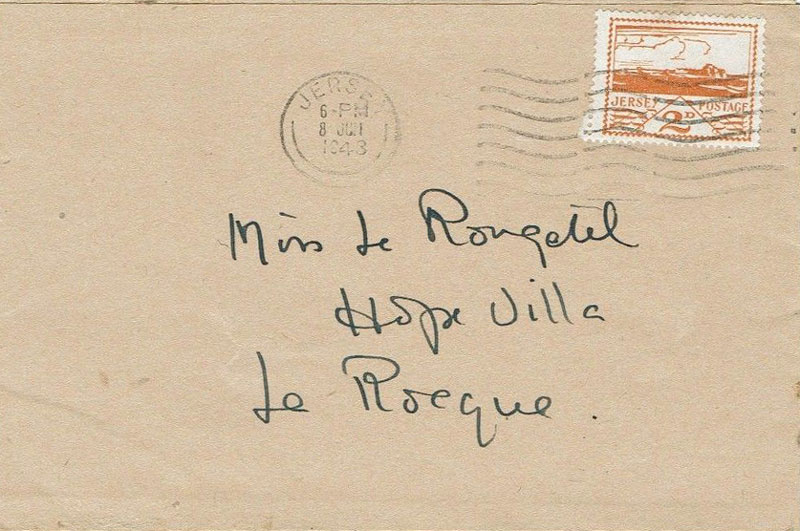 JERSEY
6-PM
8 JUN
1943
JERSEY POSTAGE
2D
Miss Le Rougetel
Hope Villa
La Rocque.